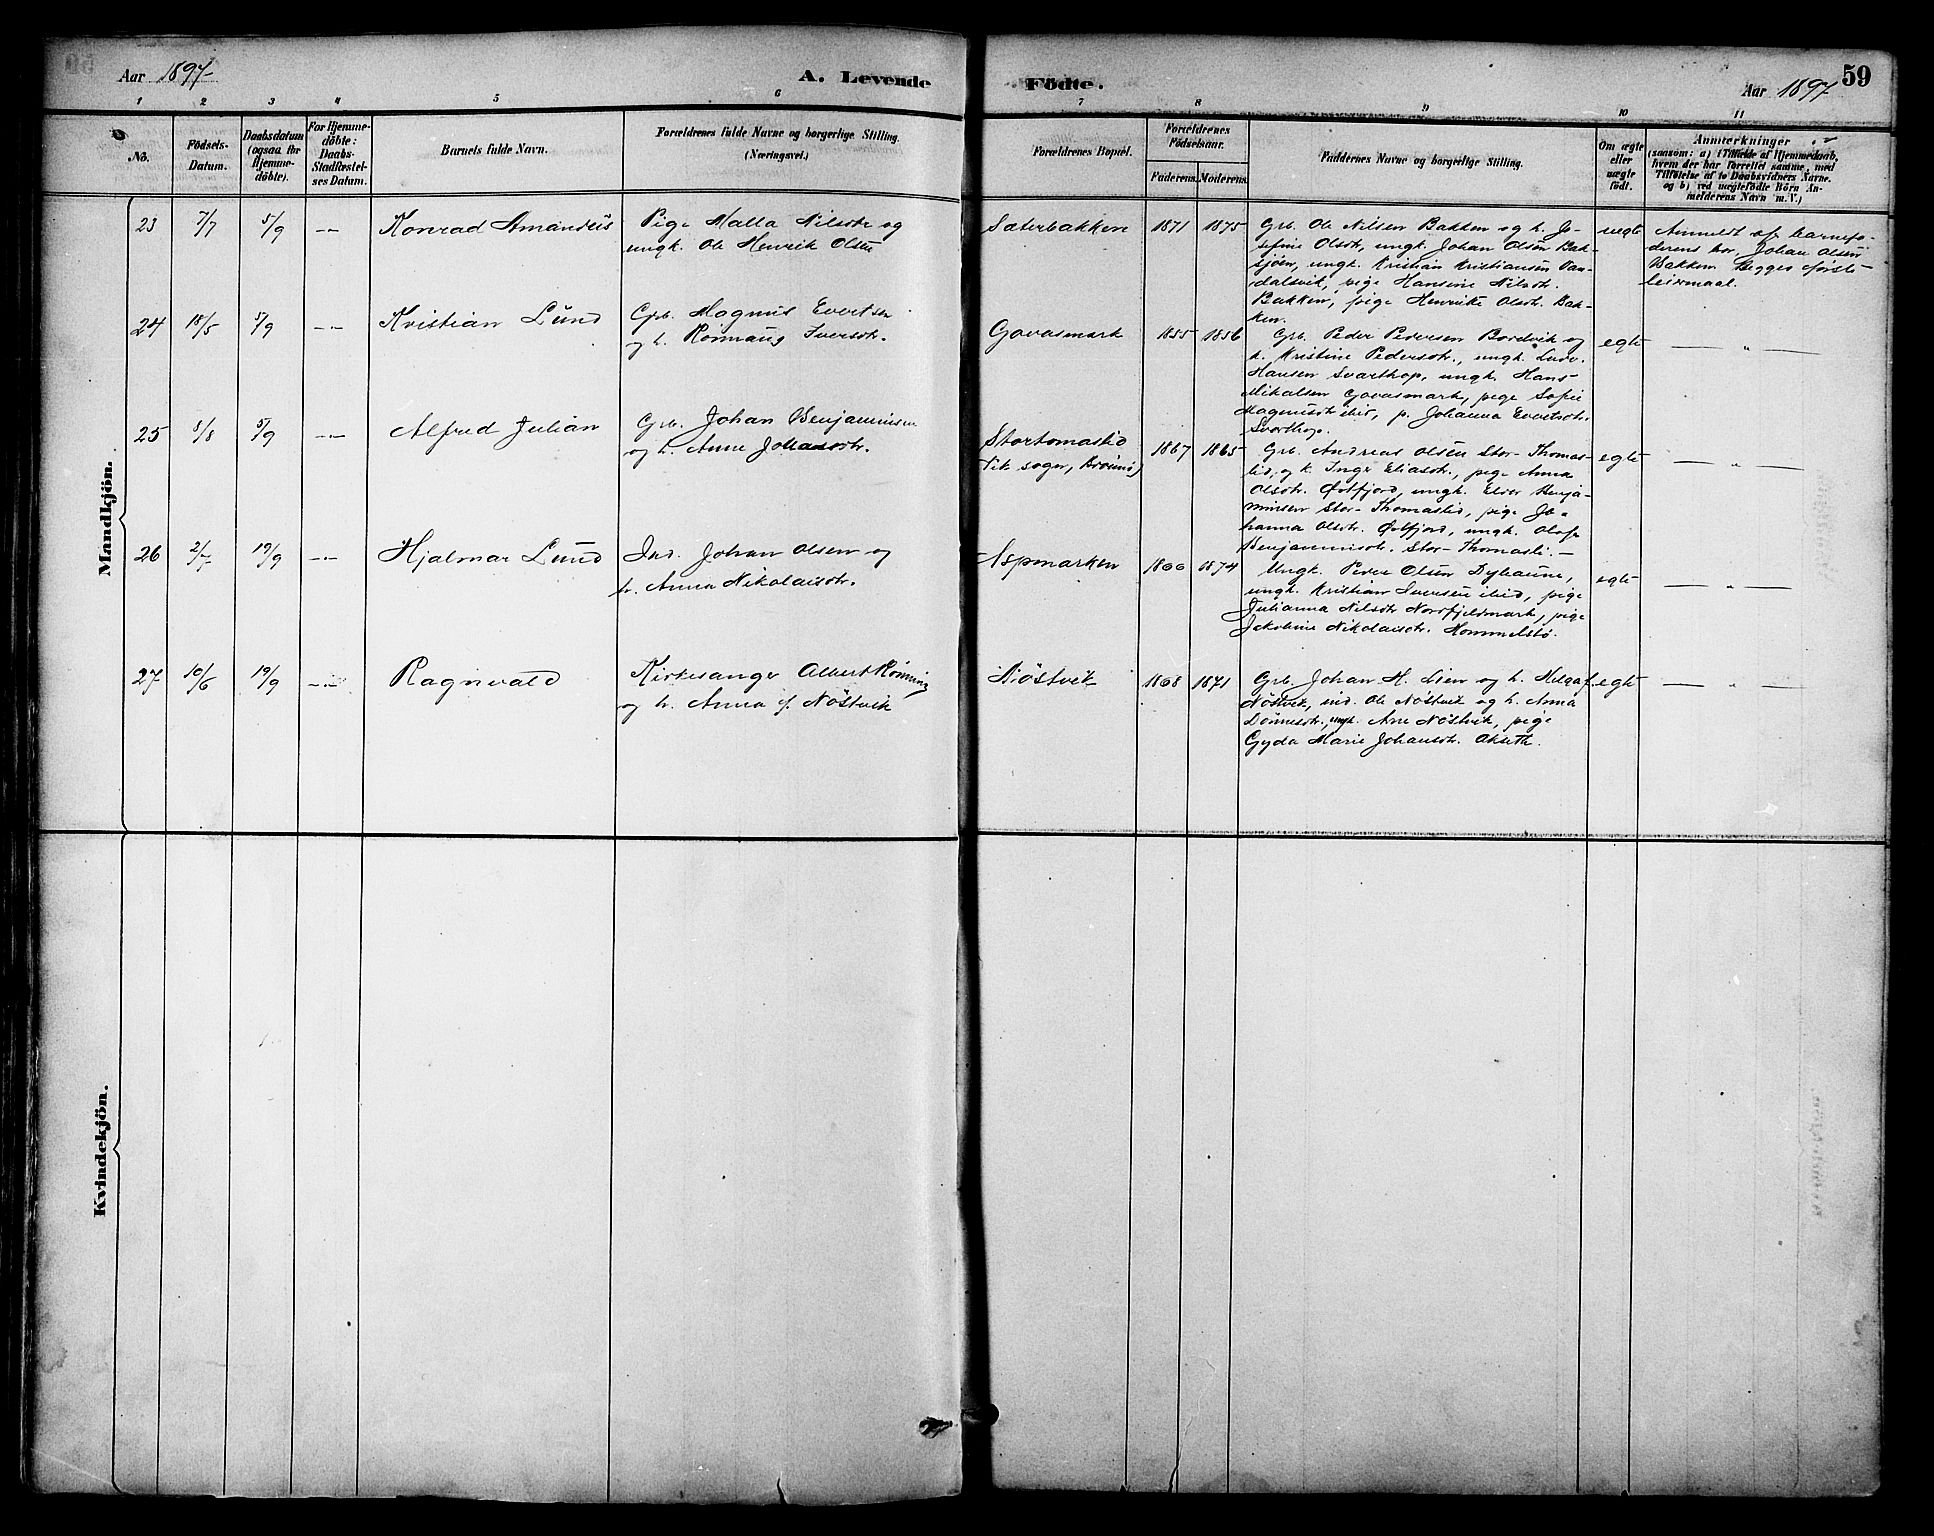 Aar 1897
A. Levende
Födte.
59
Aar 1897
1 2 3 4 5 6 7 8 9 10 11
No.
Födsels-
Datum.
Daabsdatum
(ogsaa for
Hjemme-
döbte).
For Hjemme-
döbte:
Daabs-
Stadfæstel-
ses Datum.
Barnets fulde Navn.
Forældrenes fulde Navne og borgerlige Stilling.
(Næringsvei.)
Forældrenes Bopæl.
Forældrenes
Födselsaar.
Faderens. Moderens.
Faddernes Navne og borgerlige Stilling.
Om ægte
eller
uægte
födt.
Anmærkninger
(saasom: a) i Tilfælde af Hjemmedaab,
hvem der har forrettet samme, med
Tilföielse af to Daabsvidners Navne,
og b) ved uægtefödte Börn An-
melderens Navn m. V.)
Mandkjön.
23 7/7 5/9 -"- Konrad Amandus
Pige Malla Nilsdtr og
ungk. Ole Henrik Olsen
Sæterbakken 1871 1875
Grb. Ole Nilsen Bakken og h. Jo-
sefine Olsdtr, ungk. Johan Olsen Bak-
sjøen, ungk. Kristian Kristiansen Van-
dalsvik, pige Hansine Nilsdtr.
Bakken, pige Henrike Olsdtr. Bak-
ken.
uegte
Anmeldt af barnefa-
derens bor. Johan Olsen
Bakken. Begges første
leiermaal.
24 18/5 5/9 -"- Kristian Lund
Grb. Magnus Evertsen
og h. Rønnaug Iversdtr.
Govasmark 1855 1856
Grb. Peder Pedersen Bordvik og
h. Kristine Pedersdtr., ungk. Ludv.
Hansen Svarthop, ungk. Hans
Mikalsen Govasmark, pige Sofie
Magnusdtr ibid, p. Johanna Evertsdtr.
Svarthop.
egte — " —
25 8/8 5/9 -"- Alfred Julian
Grb. Johan Benjaminsen
og h. Anne Johansdtr.
Stortomaslid
Vik sogn, Brønnø) 1867 1865
Grb. Andreas Olsen Stor-Thomas-
lid, og h. Inger Eliasdtr., pige Anna
Olsdtr. Østfjord, ungk. Elder Benja-
minsen Stor-Thomaslid, pige Jo-
hanna Olsdtr. Østfjord, ungk. Oluf
Benjaminsdtr. Stor-Thomasli. –
egte — " —
26 2/7 19/9 -"- Hjalmar Lund
Ind. Johan Olsen og
h. Anna Nikolaisdtr.
Aspmarken 1866 1874
Ungk. Peder Olsen Dyhaune,
ungk. Kristian Iversen ibid, pige
Julianna Nilsdtr Nordfjeldmark, pige
Jakobine Nikolaisdtr. Hommelstø.
egte — " —
27 10/6 19/9 -"- Ragnvald
Kirkesanger Albert Rønning
og h. Anna f. Nøstvik
Nöstvik 1868 1871
Grb. Johan H. Lien og h. Helga f.
Nöstvik, ind. Ole Nöstvik og h. Anna
Dønnesdtr., ungk. Arne Nöstvik, pige
Gyda Marie Johansdtr. Okseth.
egte — " —
Kvindekjön.